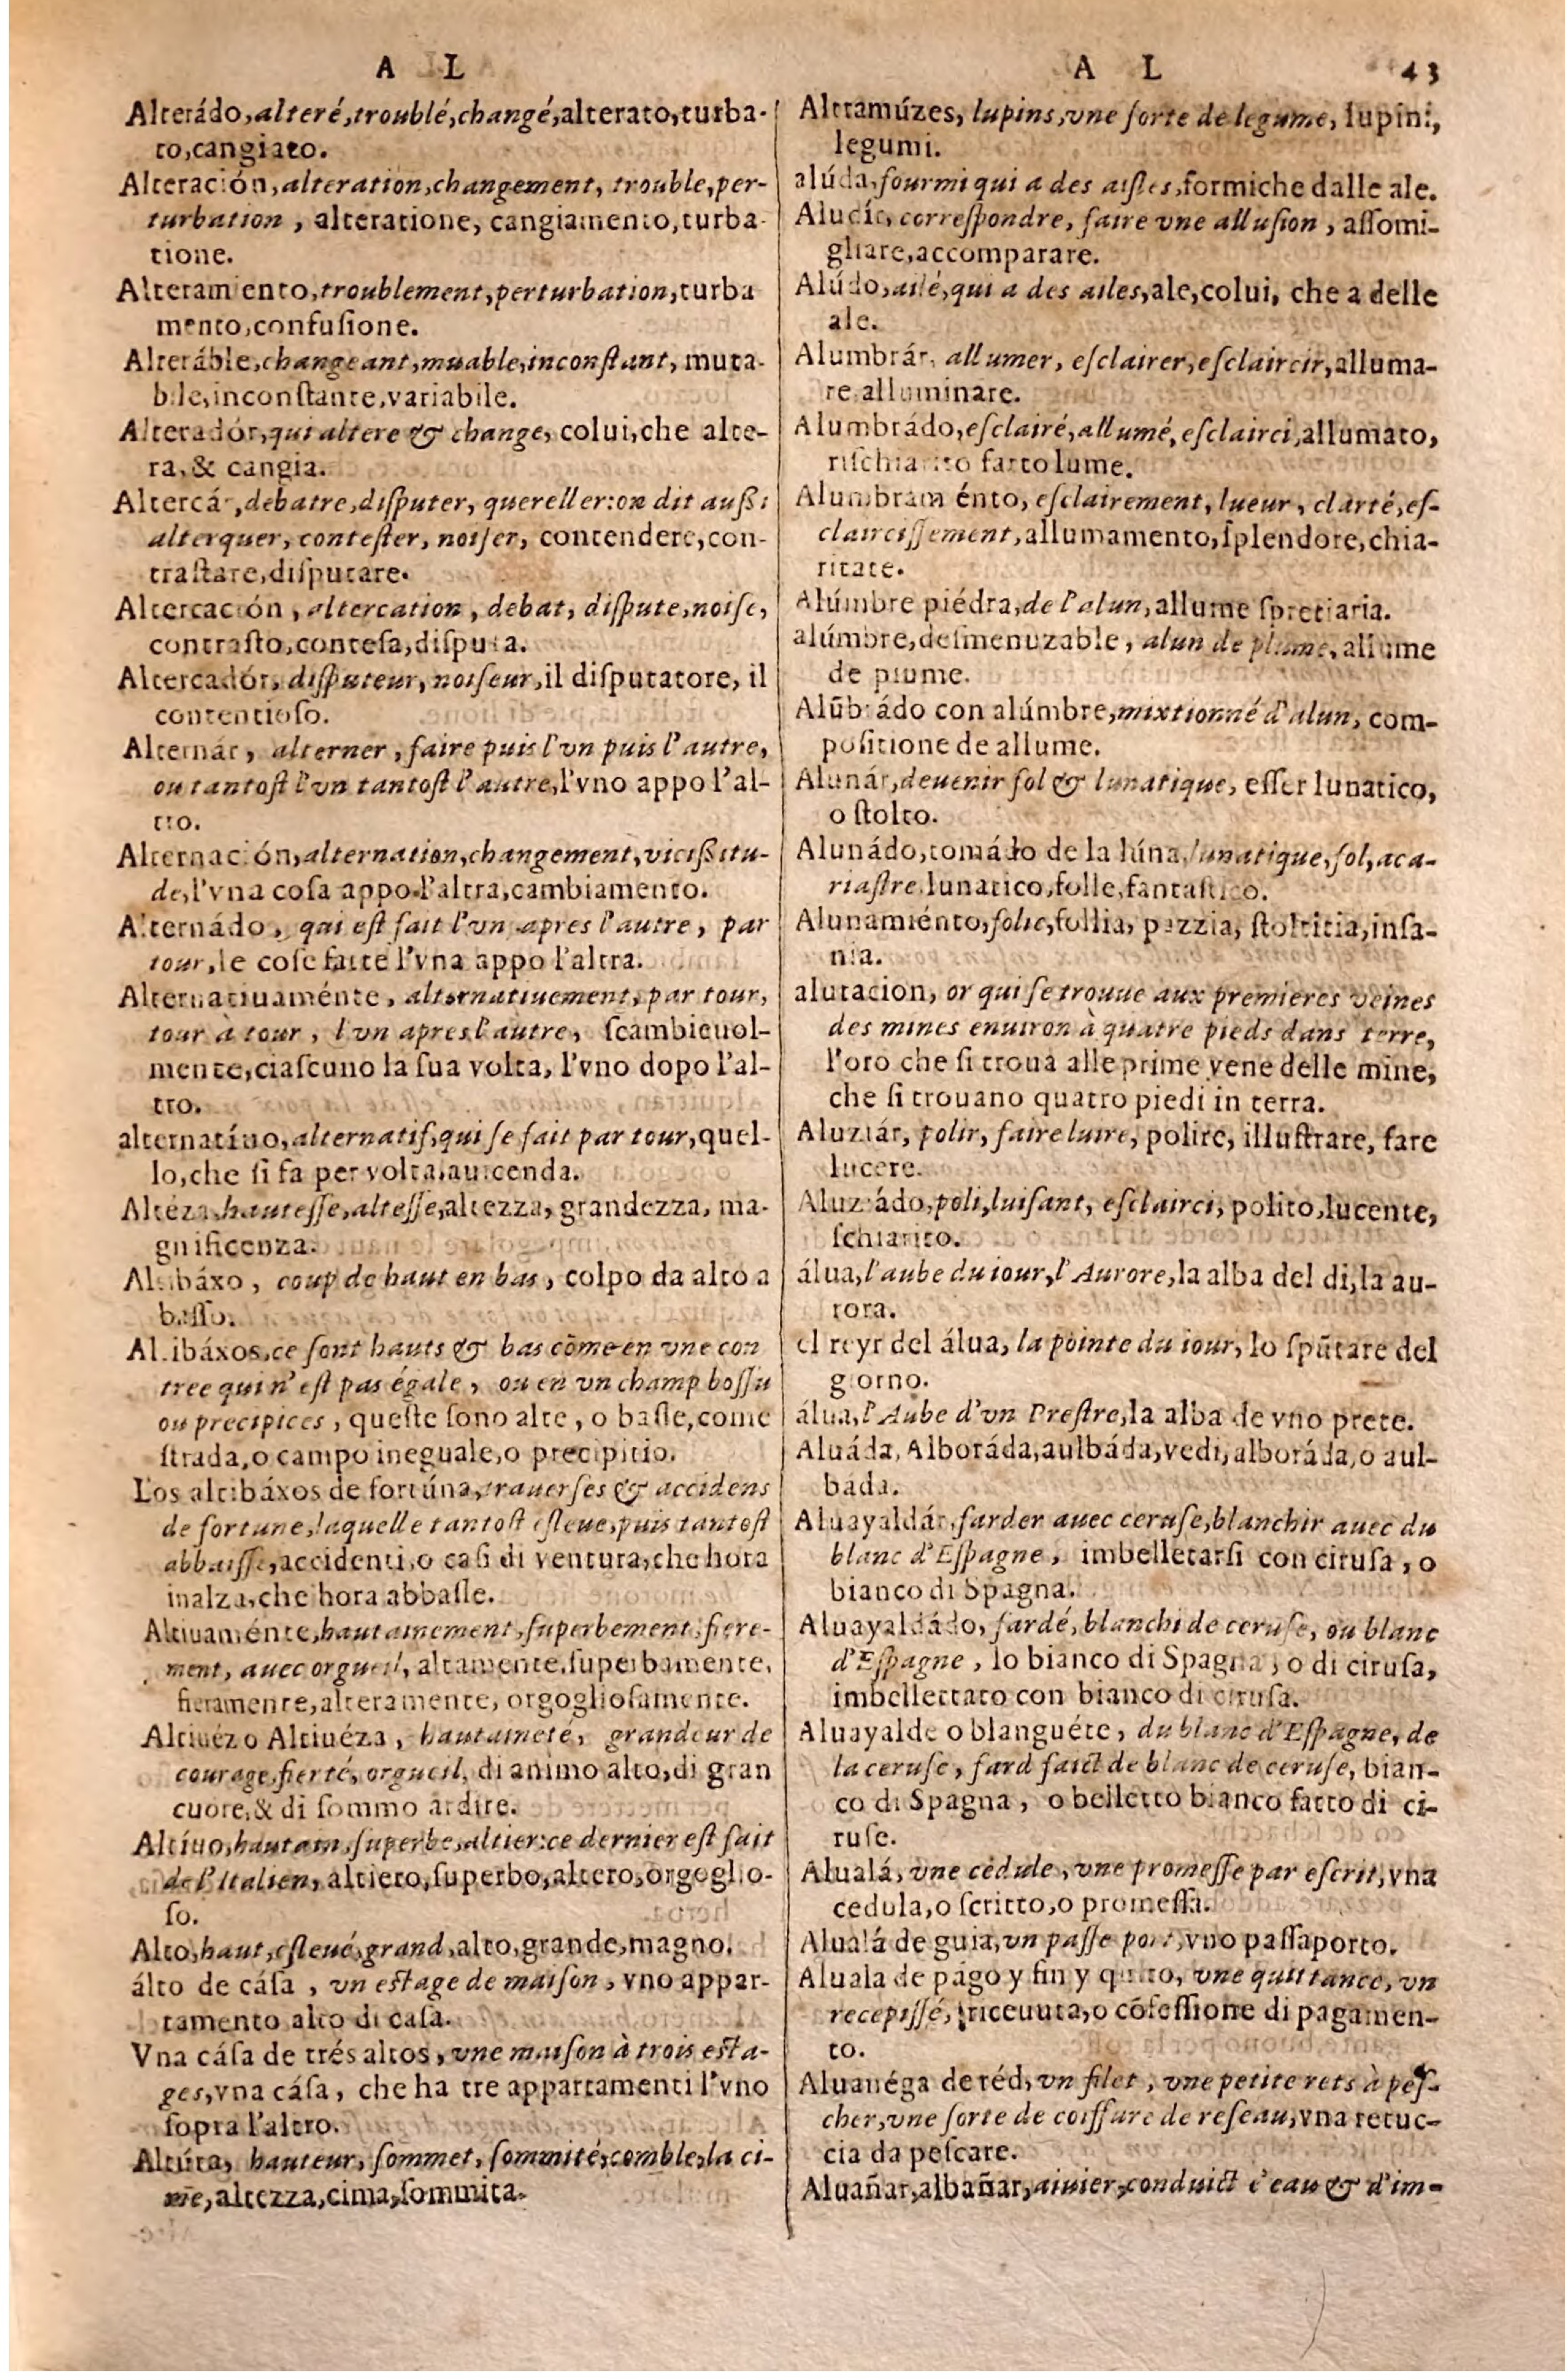 A L
Alterádo, alteré, troublé, changé, alterato, turba-
to, cangiato.
Alteración, alteration, changement, trouble, per-
turbation, alteratione, cangiamento, turba-
tione.
Alteramiento, troublement, perturbation, turba
mento, confuſione.
Alteráble, changeant, muable, inconſtant, muta-
bile, inconſtante, variabile.
Alteradór, qui altere & change, colui, che alte-
ra, & cangia.
Altercár, debatre, diſputer, quereller: on dit außi
alterquer, conteſter, noiſer, contendere, con-
traſtare, diſputare.
Altercación, altercation, debat, diſpute, noiſe,
contraſto, conteſa, diſputa.
Altercadór, diſputeur, noiſeur, il diſputatore, il
contentioſo.
Alternár, alterner, faire puis l'vn puis l'autre,
ou tantoſt l'vn tantoſt l'autre, l'vno appo l'al-
tro.
Alternación, alternation, changement, vicißitu-
de, l'vna coſa appo l'altra, cambiamento.
Alternádo, qui eſt fait l'vn apres l'autre, par
tour, le coſe fatte l'vna appo l'altra.
Alternatiuaménte, alternatiuement, par tour,
tour à tour, l'vn apres l'autre, ſcambieuol-
mente, ciaſcuno la ſua volta, l'vno dopo l'al-
tro.
alternatíuo, alternatif, qui ſe fait par tour, quel-
lo, che ſi fa per volta, auicenda.
Altéza, hauteſſe, alteſſe, altezza, grandezza, ma-
gnificenza.
Altibáxo, coup de haut en bas, colpo da alto a
baſſo.
Altibáxos, ce ſont hauts & bas cõme en vne con
tree qui n'eſt pas égale, ou en vn champ boſſu
ou precipices, queſte ſono alte, o baſſe, come
ſtrada, o campo ineguale, o precipitio.
Los altibáxos de fortúna, trauerſes & accidens
de fortune, laquelle tantoſt eſleue, puis tantoſt
abbaiſſe, accidenti, o caſi di ventura, che hora
inalza, che hora abbaſſe.
Altiuaménte, hautainement, ſuperbement, fiere-
ment, auec orgueil, altamente, ſuperbamente,
fieramente, alteramente, orgoglioſamente.
Altiuéz o Altiuéza, hautaineté, grandeur de
courage, fierté, orgueil, di animo alto, di gran
cuore, & di ſommo ardire.
Altíuo, hautain, ſuperbe, altier: ce dernier eſt fait
de l'Italien, altiero, ſuperbo, altero, orgoglio-
ſo.
Alto, haut, eſleué, grand, alto, grande, magno.
álto de cáſa, vn eſtage de maiſon, vno appar-
tamento alto di caſa.
Vna cáſa de trés altos, vne maiſon à trois eſta-
ges, vna cáſa, che ha tre appartamenti l'vno
ſopra l'altro.
Altúra, hauteur, ſommet, ſommité, comble, la ci-
me, altezza, cima, ſommita.
A L 43
Altramúzes, lupins, vne ſorte de legume, lupini,
legumi.
alúda, fourmi qui a des aiſles, formiche dalle ale.
Aludír, correſpondre, faire vne alluſion, aſſomi-
gliare, accomparare.
Alúdo, ailé, qui a des ailes, ale, colui, che a delle
ale.
Alumbrár, allumer, eſclairer, eſclaircir, alluma-
re, alluminare.
Alumbrádo, eſclairé, allumé, eſclairci, allumato,
riſchiarito fatto lume.
Alumbramiénto, eſclairement, lueur, clarté, eſ-
clairciſſement, allumamento, ſplendore, chia-
ritate.
Alúmbre piédra, de l'alun, allume ſpretiaria.
alúmbre, deſmenuzable, alun de plume, allume
de piume.
Alũbrádo con alúmbre, mixtionné d'alun, com-
poſitione de allume.
Alunár, deuenir fol & lunatique, eſſer lunatico,
o ſtolto.
Alunádo, tomádo de la lúna, lunatique, fol, aca-
riaſtre, lunatico, folle, fantaſtico.
Alunamiénto, folie, follia, pazzia, ſtoltitia, inſa-
nia.
alutacion, or qui ſe trouue aux premieres veines
des mines enuiron à quatre pieds dans terre,
l'oro che ſi troua alle prime vene delle mine,
che ſi trouano quatro piedi in terra.
Aluziár, polir, faire luire, polire, illuſtrare, fare
lucere.
Aluziádo, poli, luiſant, eſclairci, polito, lucente,
ſchiarito.
álua, l'aube du iour, l'Aurore, la alba del di, la au-
rora.
el reyr del álua, la pointe du iour, lo ſpũtare del
giorno.
álua, l'Aube d'vn Preſtre, la alba de vno prete.
Aluáda, Alboráda, aulbáda, vedi, alboráda, o aul-
bada.
Aluayaldár, farder auec ceruſe, blanchir auec du
blanc d'Eſpagne, imbelletarſi con ciruſa, o
bianco di Spagna.
Aluayaldádo, fardé, blanchi de ceruſe, ou blanc
d'Eſpagne, lo bianco di Spagna, o di ciruſa,
imbellettato con bianco di ciruſa.
Aluayalde o blanguéte, du blanc d'Eſpagne, de
la ceruſe, fard faict de blanc de ceruſe, bian-
co di Spagna, o belletto bianco fatto di ci-
ruſe.
Alualá, vne cedule, vne promeſſe par eſcrit, vna
cedula, o ſcritto, o promeſſa.
Alualá de guia, vn paſſe port, vno paſſaporto.
Aluala de págo y fin y quito, vne quittance, vn
recepiſſé, riceuuta, o cõfeſſione di pagamen-
to.
Aluanéga de réd, vn filet, vne petite rets à peſ-
cher, vne ſorte de coiffure de reſeau, vna retuc-
cia da peſcare.
Aluañar, albañar, aiuier, conduict d'eau & d'im-